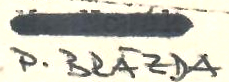 P. BRÁZDA